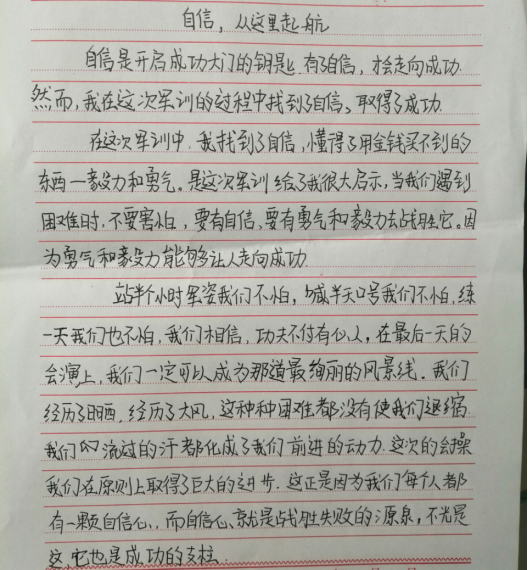 自信，从这里起航
自信是开启成功大门的钥匙，有了自信，才会走向成功.
然而，我在这次军训的过程中找到了自信、取得了成功.
在这次军训中，我找到了自信，懂得了用金钱买不到的
东西一毅力和勇气。是这次军训给了我很大启示，当我们遇到
困难时，不要害怕，要有自信，要有勇气和毅力去战胜它。因
为勇气和毅力能够让人走向成功.
站半个小时军姿我们不怕，喊半天口号我们不怕，练
一天我们也不怕，我们相信，功夫不付有心人，在最后一天的
会演上，我们一定可以成为那道最绚丽的风景线。我们
经历了日晒，经历了大风，这种种困难都没有使我们退缩.
我们的流过的汗都化成了我们前进的动力.这次的会操
我们在原则上取得了巨大的进步.这正是因为我们每个人都
有一颗自信心，而自信心就是战胜失败的源泉，不光是
这，它也是成功的支柱.